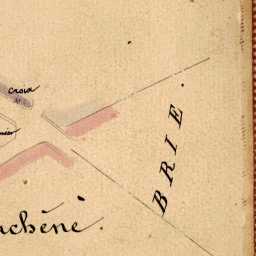 croix
BRIE.
nchêne.